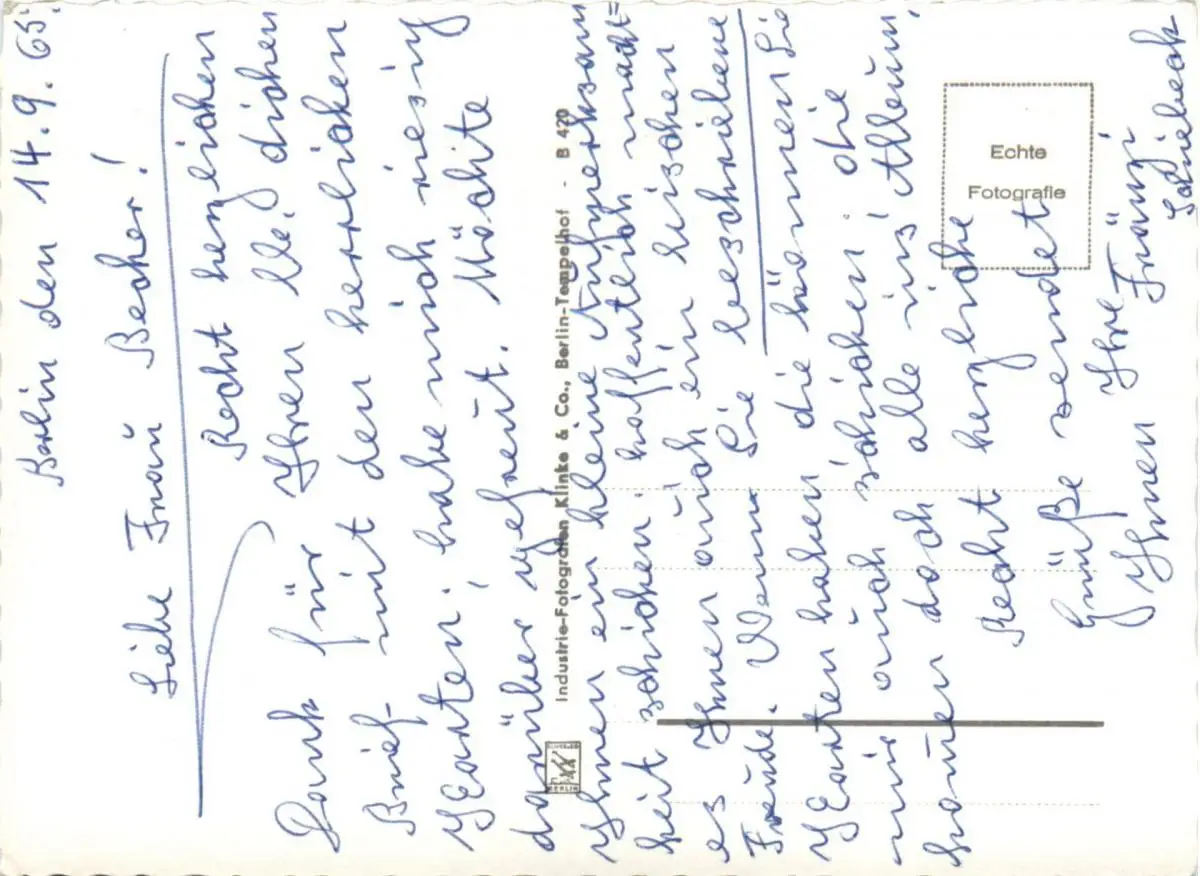 Berlin den 14.9.65.
Liebe Frau Becker!
Recht herzlichen
Dank für Ihren lb. dicken
Brief mit den herrlichen
Karten, habe mich riesig
darüber gefreut. Möchte
Ihnen ein kleine Aufmerksam
keit schicken, hoffentlich macht=
es Ihnen auch ein bischen
Freude. Wenn Sie beschriebene
Karten haben die können Sie
mir auch schicken, die
kommen doch alle ins Album,
Recht herzliche
Grüße sendet
Ihnen Ihre
Fränzi
Industrie-Fotografen Klinke & Co., Berlin-Tempelhof - B 420
BERLIN
Echte
Fotografie